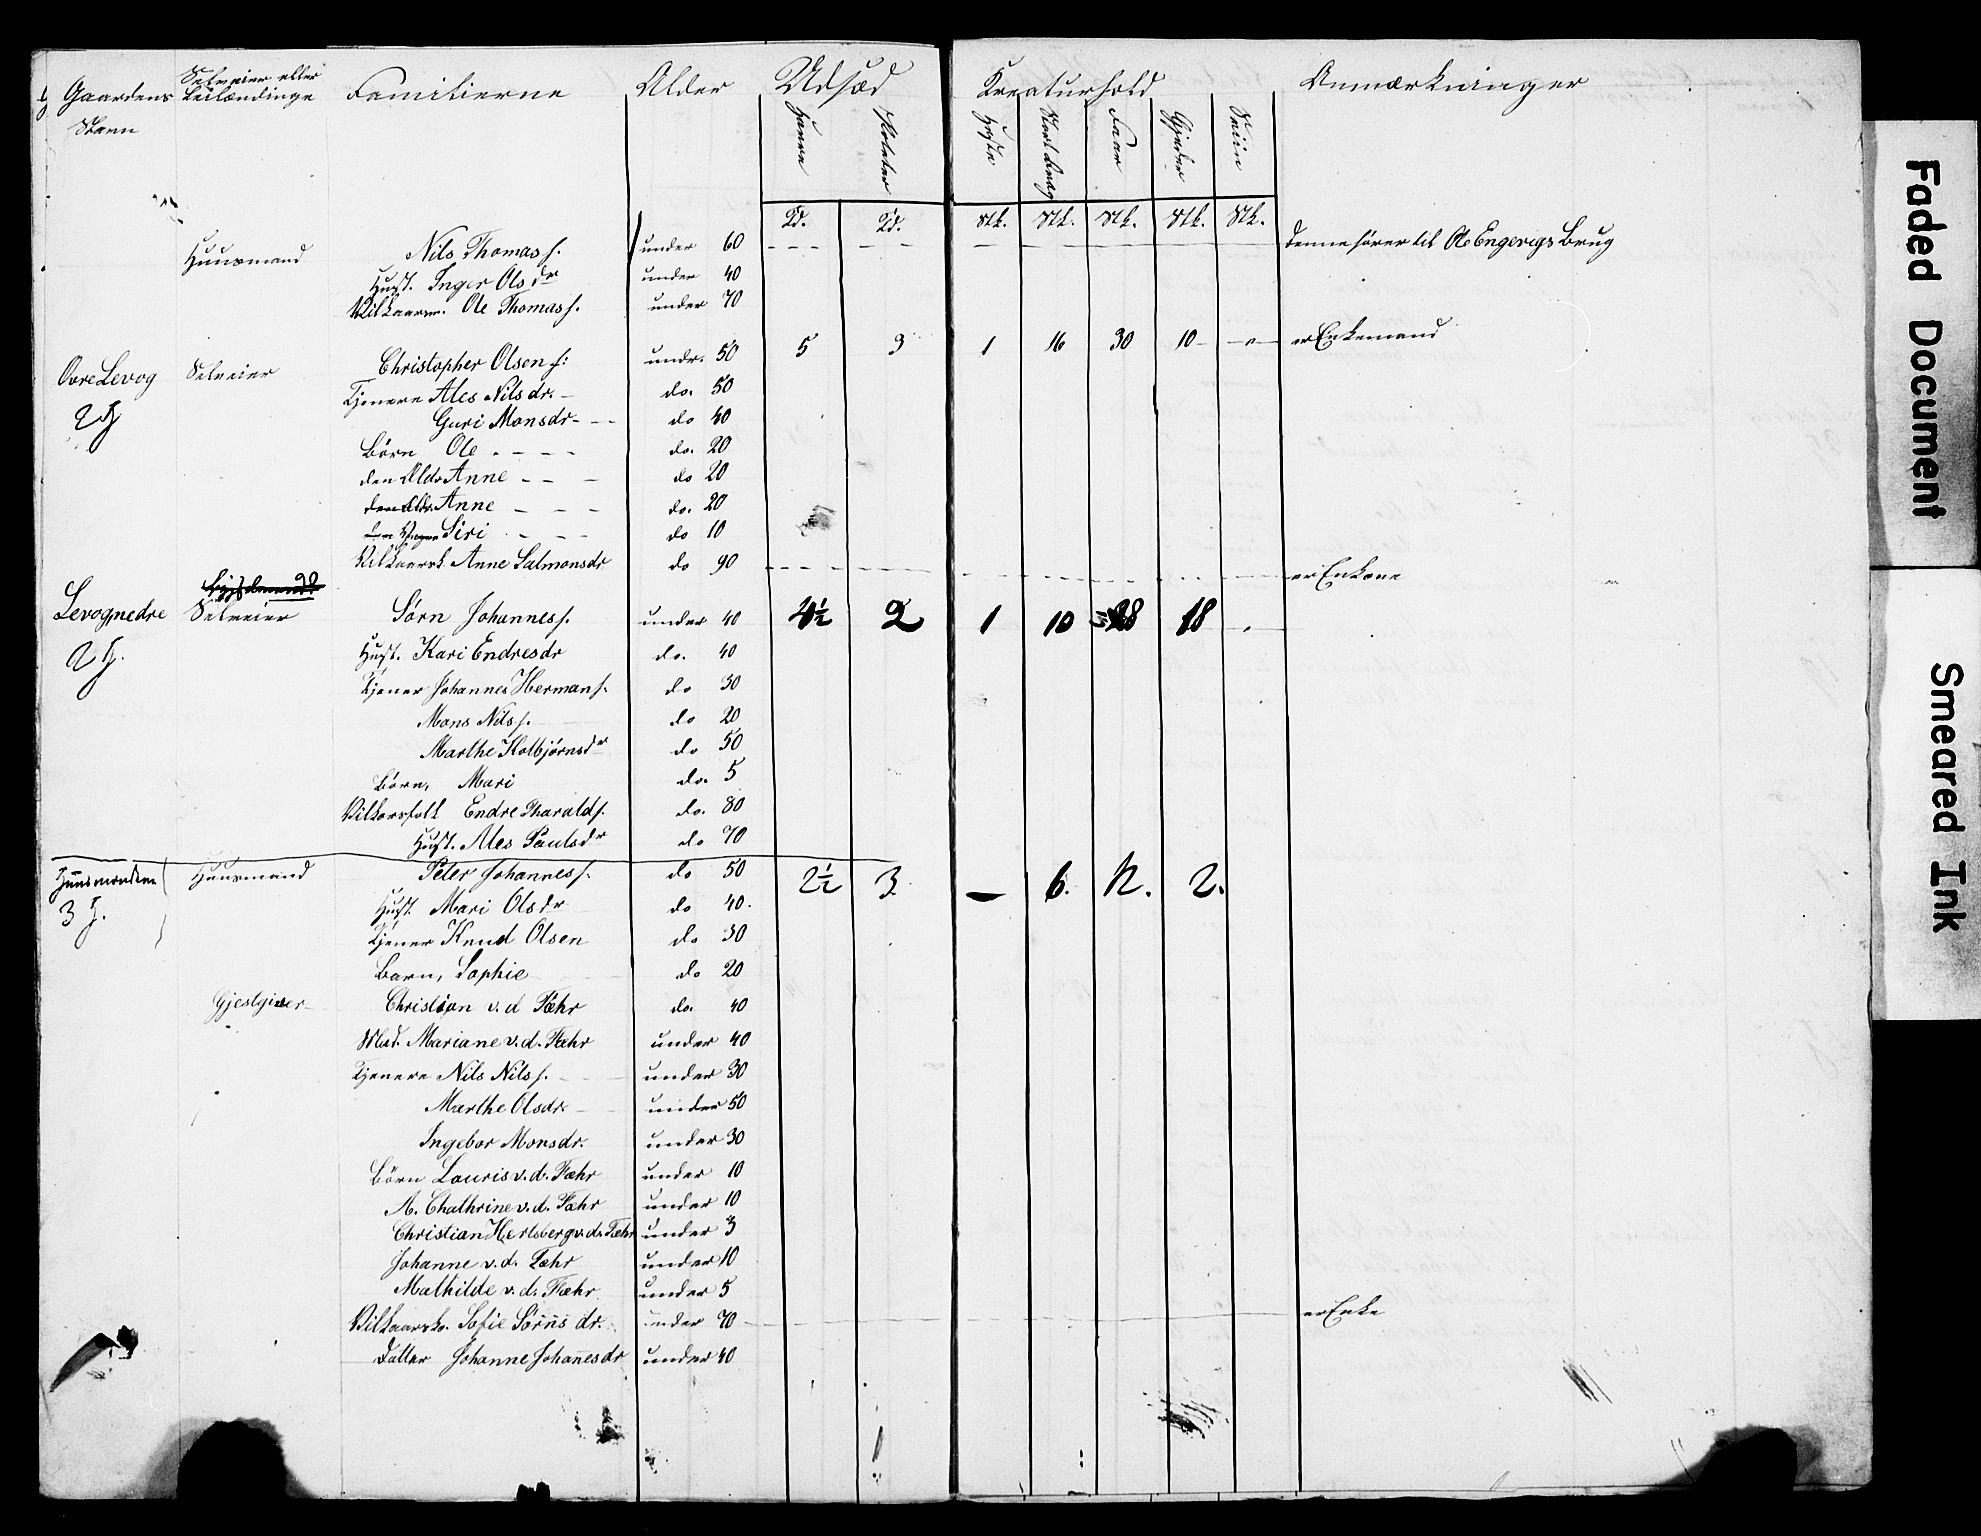 Gaardens Navn | Selveier eller Leilændinge | Familierne | Alder | Udsæd | Kreaturhold | Anmærkninger
Havre | Poteter | Heste | Stort Qvæg | Faar | Gjeder | Sviin
Td. | Td. | Stk. | Stk. | Stk. | Stk. | Stk.
Huusmand | Nils Thomass. | under 60 | Denne hører til Ole Engevigs Brug
Hust. Inger Olsdr | under 40
Vilkaarm. Ole Thomass. | under 70
Øvre Levog | Selveier | Christopher Olsen f: | undr. 50 | 5 | 3 | 1 | 16 | 30 | 10 | er Enkemand
2 Tjenere Ales Nilsdr. | do. 50
Guri Monsdr | do 40
Börn Ole | do. 20
den Eldr Anne | do 20
den Anne | do. 20
Siri | do 10
Vilkaarsk. Anne Salmonsdr | do 90 | er Enkone
Levognedre | Selveier | Sørn Johanness. | under 40 | 4½ | 2 | 1 | 10 | 28 | 18
2 | Hust. Kari Endresdr | do. 40
Tjener Johannes Hermans. | do 30
Mons Nilss. | do 20
Marthe Kolbjørnsdr | do 50
Börn, Mari | do. 5
Vilkorsfolk Endre Tharalds. | do. 80
Hust. Ales Paulsdr | do 70
Huusmand | Peter Johanness. | do 50 | 2½ | 3 | – | 6. | 12. | 2.
3 | Hust. Mari Olsdr | do 40.
Tjener Knud Olsen | do 30
Barn, Sophie | do 20
Gjestgiver | Christian v. d Fæhr | do. 40
Mad. Mariane v. d. Fæhr | under 40
Tjenere Nils Nilss. | under 30
Marthe Olsdr. | under 50
Ingebor Monsdr. | under 30
Börn Louris v. d. Fæhr | under 10
A. Chathrine v. d. Fæhr | under 10
Christian Hertsberg v. d. Fæhr | under 3
Johanne v. d. Fæhr | under 10
Mathilde v. d. Fæhr | under 5
Vilkaarsk. Sofie Sörns dr. | under 70 | er Enke
Datter Johanne Johanesdr | under 40
Faded Document
Smeared Ink